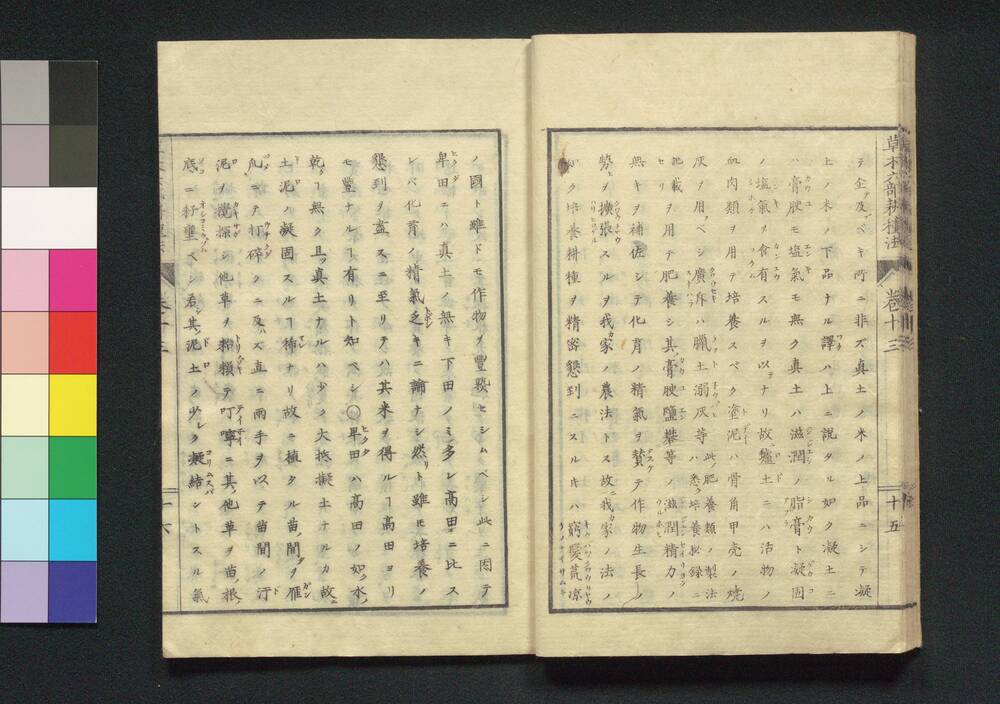 草木六部耕種法
巻十三
十五
テ企及ブベキ所ニ非ズ真土ノ米ノ上品ニシテ凝
上ノ米ノ下品ナル譯ハ上ニ説タル如ク凝土ニ
ハ膏腴モ塩氣モ無ク真土ハ滋潤ノ脂膏ト凝固
ノ塩氣ヲ含有スルヲ以テナリ故壚土ニハ活物ノ
血肉類ヲ用テ培養スベク塗泥ハ骨角甲壳ノ焼
灰ヲ用フベシ廣斥ハ臘土溺灰等此ノ肥養類ノ製法ハ悉ク培養秘録ニ
記載ヲ用テ肥養シ其膏腴鹽礬等ノ滋潤精力ノ
無キヲ補佐シテ化育ノ精氣ヲ賛テ作物生長ノ
勢ヲ擴張スルヲ我カ家ノ農法トス故我カ家ノ法ノ
如ク培養耕種ヲ精密懇到ニスル片ハ窮髮荒凉
ノ國ト雖ドモ作物ヲ豐熟セシムベシ此ニ因テ
卑田ニハ真土ノ無キ下田ノミ多シ高田ニ比ス
レバ化育ノ精氣乏キニ論ナシ然リト雖モ培養ノ
懇到ヲ盡スニ至リテハ其米ヲ得ルヿ高田ヨリ
モ豐ナルヿ有リト知ベシ〇卑田ハ高田ノ如ク水ノ
乾クヿ無ク且ツ真土ナルハ少ク大抵凝土ナルカ故ニ
土泥ノ凝固スルヿ稀ナリ故ニ植タル苗ノ間ダヲ雁
爪ニテ打碎クニ及ハズ直ニ兩手ヲ以テ苗間ノ汙
泥ヲ攪探シ他草ヲ粉獺テ叮嚀ニ其ノ他草ヲ苗ノ根ノ
底ニ抒壅ベシ若シ其ノ泥土ノ少シク凝結ントスル氣
十六